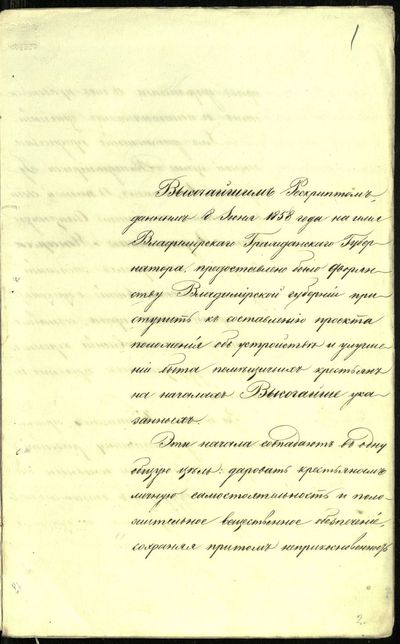 1
Высочайшимъ Рескриптомъ,
даннымъ 8 Іюня 1858 года на имя
Владимірскаго Гражданскаго Губер-
натора, предоставлено было Дворян-
ству Владимірской губерніи при-
ступить къ составленію проекта
положенія объ устройствѣ и улучше-
ніи быта помѣщичьихъ крестьянъ
на началахъ Высочайше ука-
занныхъ.
Эти начала совпадаютъ въ одну
общую цѣль: даровать крестьянамъ
личную самостоятельность и поло-
жительное вещественное обезпеченіе,
сохраняя притомъ неприкосновенность
2